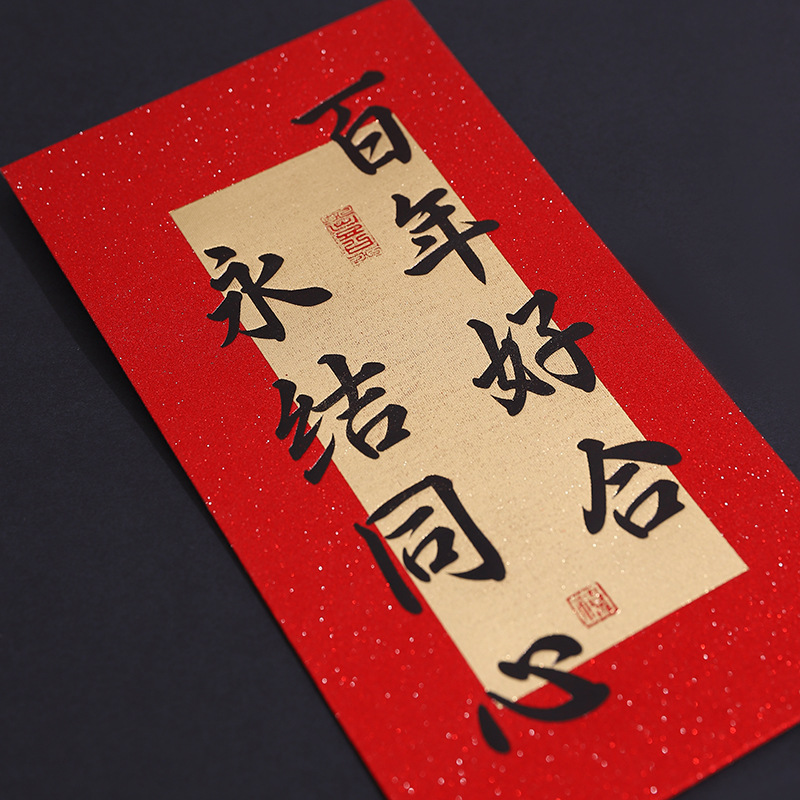 百年好合
永结同心